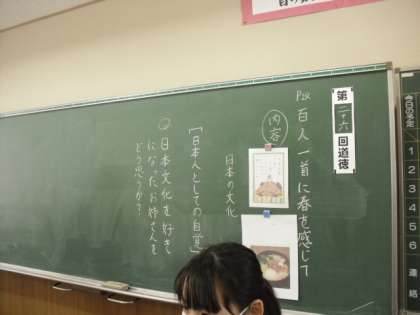 第二十六回道徳
P128 百人一首に春を感じて
内容
日本の文化
[日本人としての自覚]
日本文化を好き
になったお姉さんを
どう思うか?
今日の予定
1
2
3
4
5
6
連絡